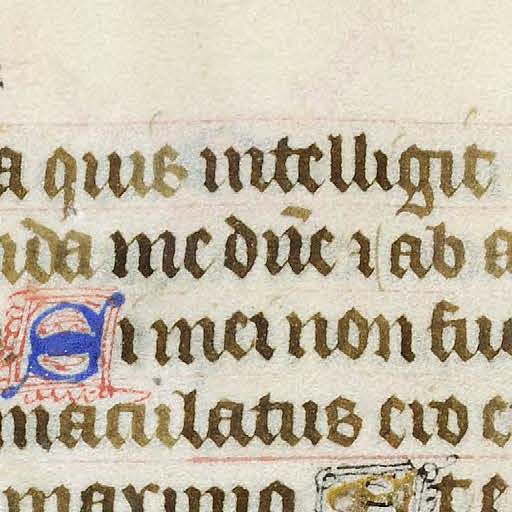 a quis intelligit
nda me dñe ⁊ ab a
Si mei non fue
maculatus ero e
maximo Et e